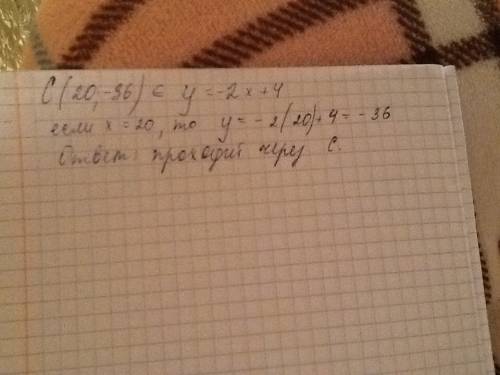 C(20;-36) ∈ y = -2x+4
если x = 20, то y = -2(20)+4 = -36
Ответ: проходит через C.